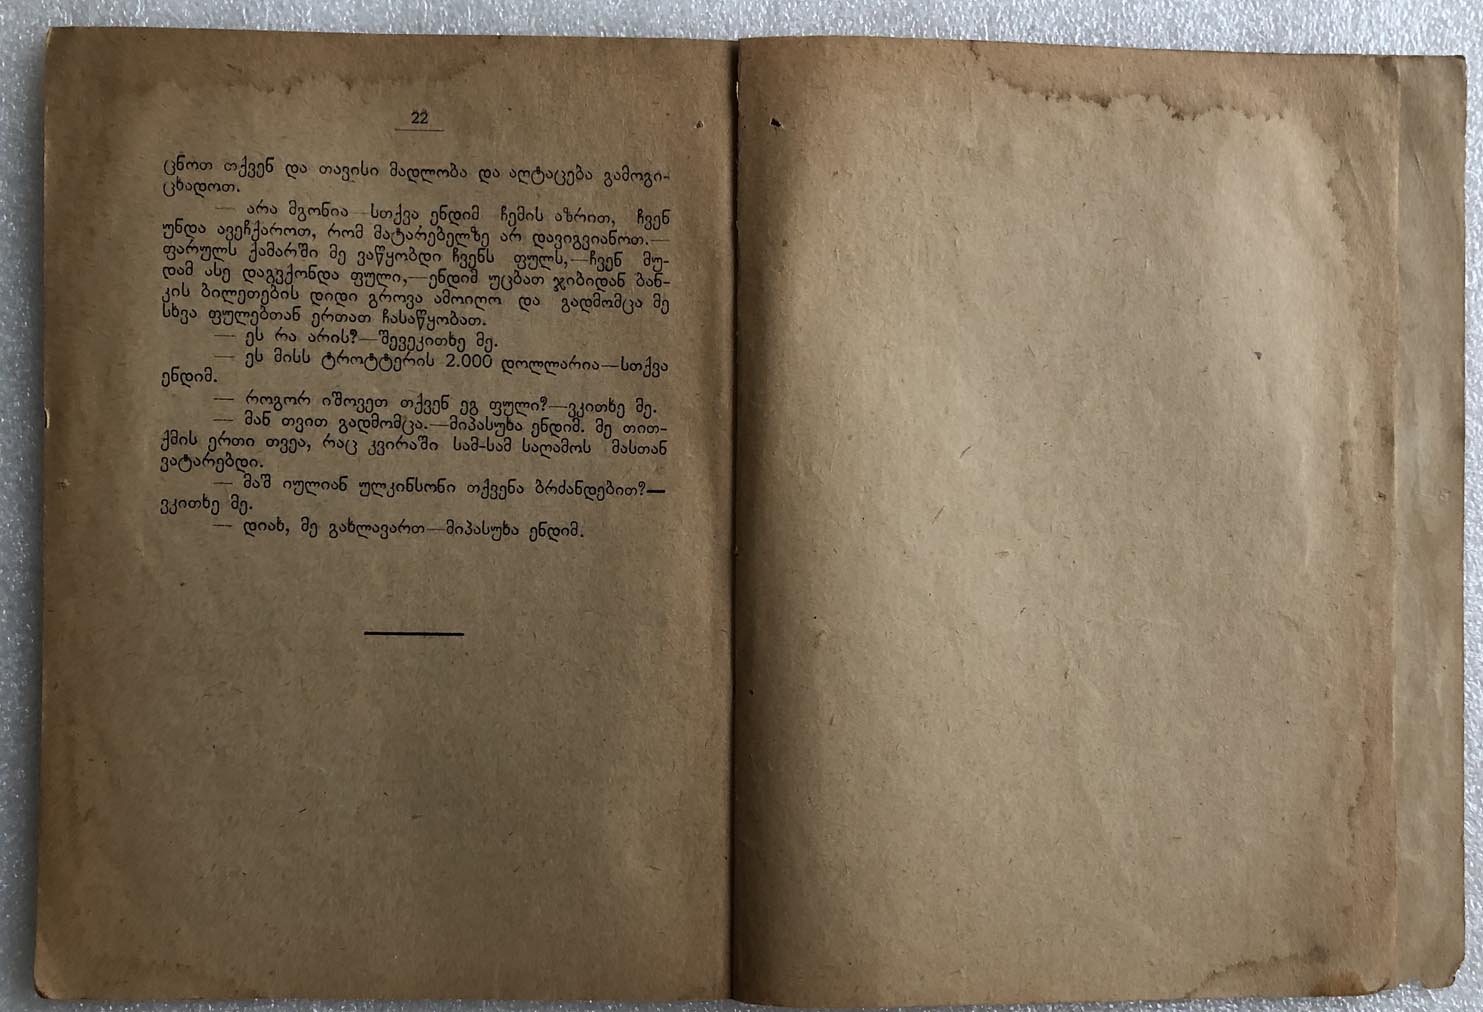 22
ცნოთ თქვენ და თავისი მადლობა და აღტაცება გამოგი-
ცხადოთ.
— არა მგონია—სთქვა ენდიმ ჩემის აზრით, ჩვენ
უნდა ავეჩქაროთ, რომ მატარებელზე არ დავიგვიანოთ.—
ფარულს ქამარში მე ვაწყობდი ჩვენს ფულს,—ჩვენ მუ-
დამ ასე დაგვქონდა ფული,—ენდიმ უცბათ ჯიბიდან ბან-
კის ბილეთების დიდი გროვა ამოიღო და გადმომცა მე
სხვა ფულებთან ერთათ ჩასაწყობათ.
— ეს რა არის?—შევეკითხე მე.
— ეს მისს ტროტტერის 2.000 დოლლარია—სთქვა
ენდიმ.
— როგორ იშოვეთ თქვენ ეგ ფული?—ვკითხე მე.
— მან თვით გადმომცა.—მიპასუხა ენდიმ. მე თით-
ქმის ერთი თვეა, რაც კვირაში სამ-სამ საღამოს მასთან
ვატარებდი.
— მაშ იულიან ულკინსონი თქვენა ბრძანდებით?—
ვკითხე მე.
— დიახ, მე გახლავართ—მიპასუხა ენდიმ.